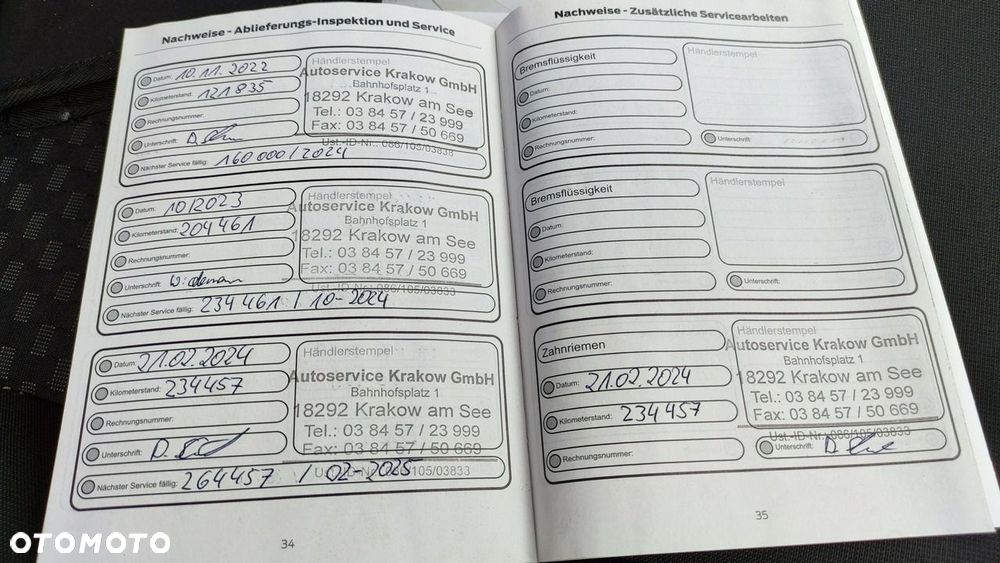 Nachweise - Ablieferungs-Inspektion und Service
Datum: 10.11.2022
Kilometerstand: 121835
Rechnungsnummer:
Unterschrift:
Nächster Service fällig: 160 000 / 2024
Händlerstempel
Autoservice Krakow GmbH
Bahnhofsplatz 1
18292 Krakow am See
Tel.: 03 84 57 / 23 999
Fax: 03 84 57 / 50 669
Ust.-ID-Nr.: 086/105/03833
Datum: 10/2023
Kilometerstand: 204461
Rechnungsnummer:
Unterschrift:
Nächster Service fällig: 234461 / 10-2024
Händlerstempel
Autoservice Krakow GmbH
Bahnhofsplatz 1
18292 Krakow am See
Tel.: 03 84 57 / 23 999
Fax: 03 84 57 / 50 669
Ust.-ID-Nr.: 086/105/03833
Datum: 21.02.2024
Kilometerstand: 234457
Rechnungsnummer:
Unterschrift:
Nächster Service fällig: 264457 / 02-2025
Händlerstempel
Autoservice Krakow GmbH
Bahnhofsplatz 1
18292 Krakow am See
Tel.: 03 84 57 / 23 999
Fax: 03 84 57 / 50 669
Ust.-ID-Nr.: 086/105/03833
34
Nachweise - Zusätzliche Servicearbeiten
Bremsflüssigkeit
Datum:
Kilometerstand:
Rechnungsnummer:
Händlerstempel
Unterschrift:
Bremsflüssigkeit
Datum:
Kilometerstand:
Rechnungsnummer:
Händlerstempel
Unterschrift:
Zahnriemen
Datum: 21.02.2024
Kilometerstand: 234457
Rechnungsnummer:
Händlerstempel
Autoservice Krakow GmbH
Bahnhofsplatz 1
18292 Krakow am See
Tel.: 03 84 57 / 23 999
Fax: 03 84 57 / 50 669
Ust.-ID-Nr.: 086/105/03833
Unterschrift:
35
OTOMOTO